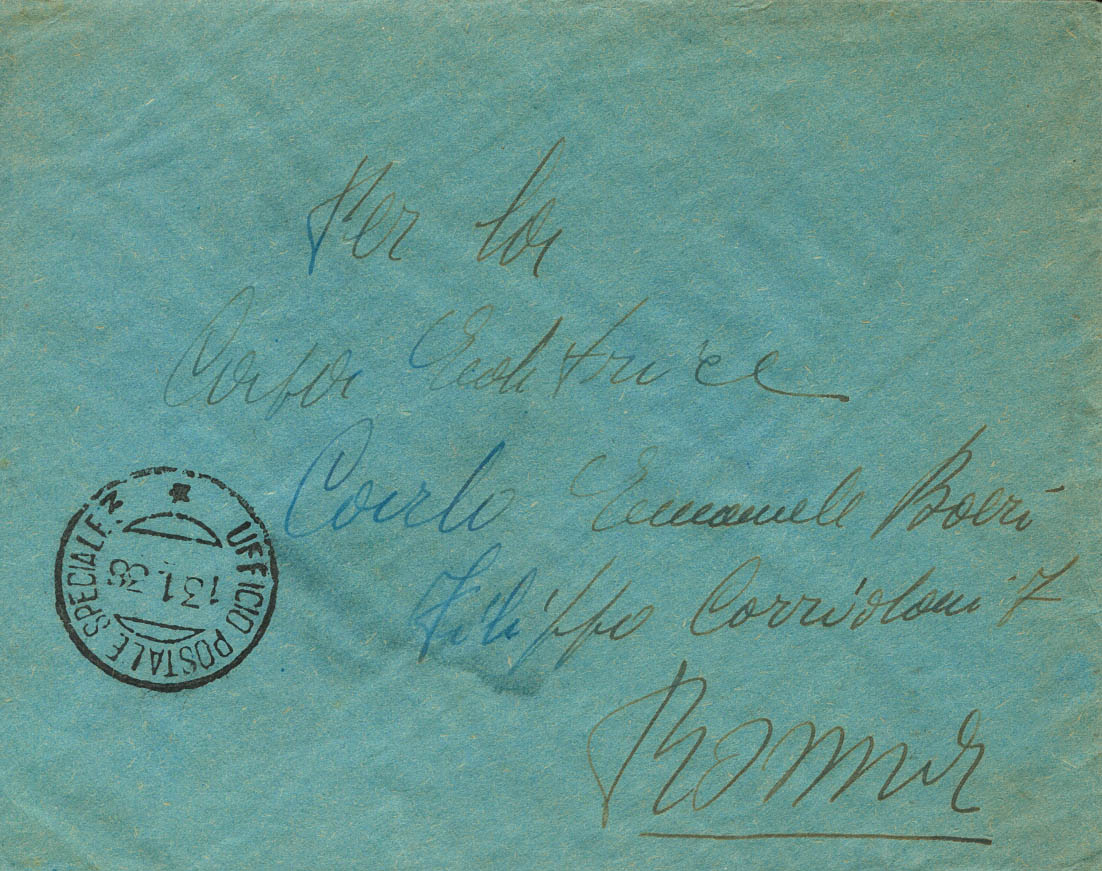 Per la
Casa Editrice
Carlo Emanuele Boeri
Filippo Corridoni 7
Roma
UFFICIO POSTALE SPECIALE
13.1.38